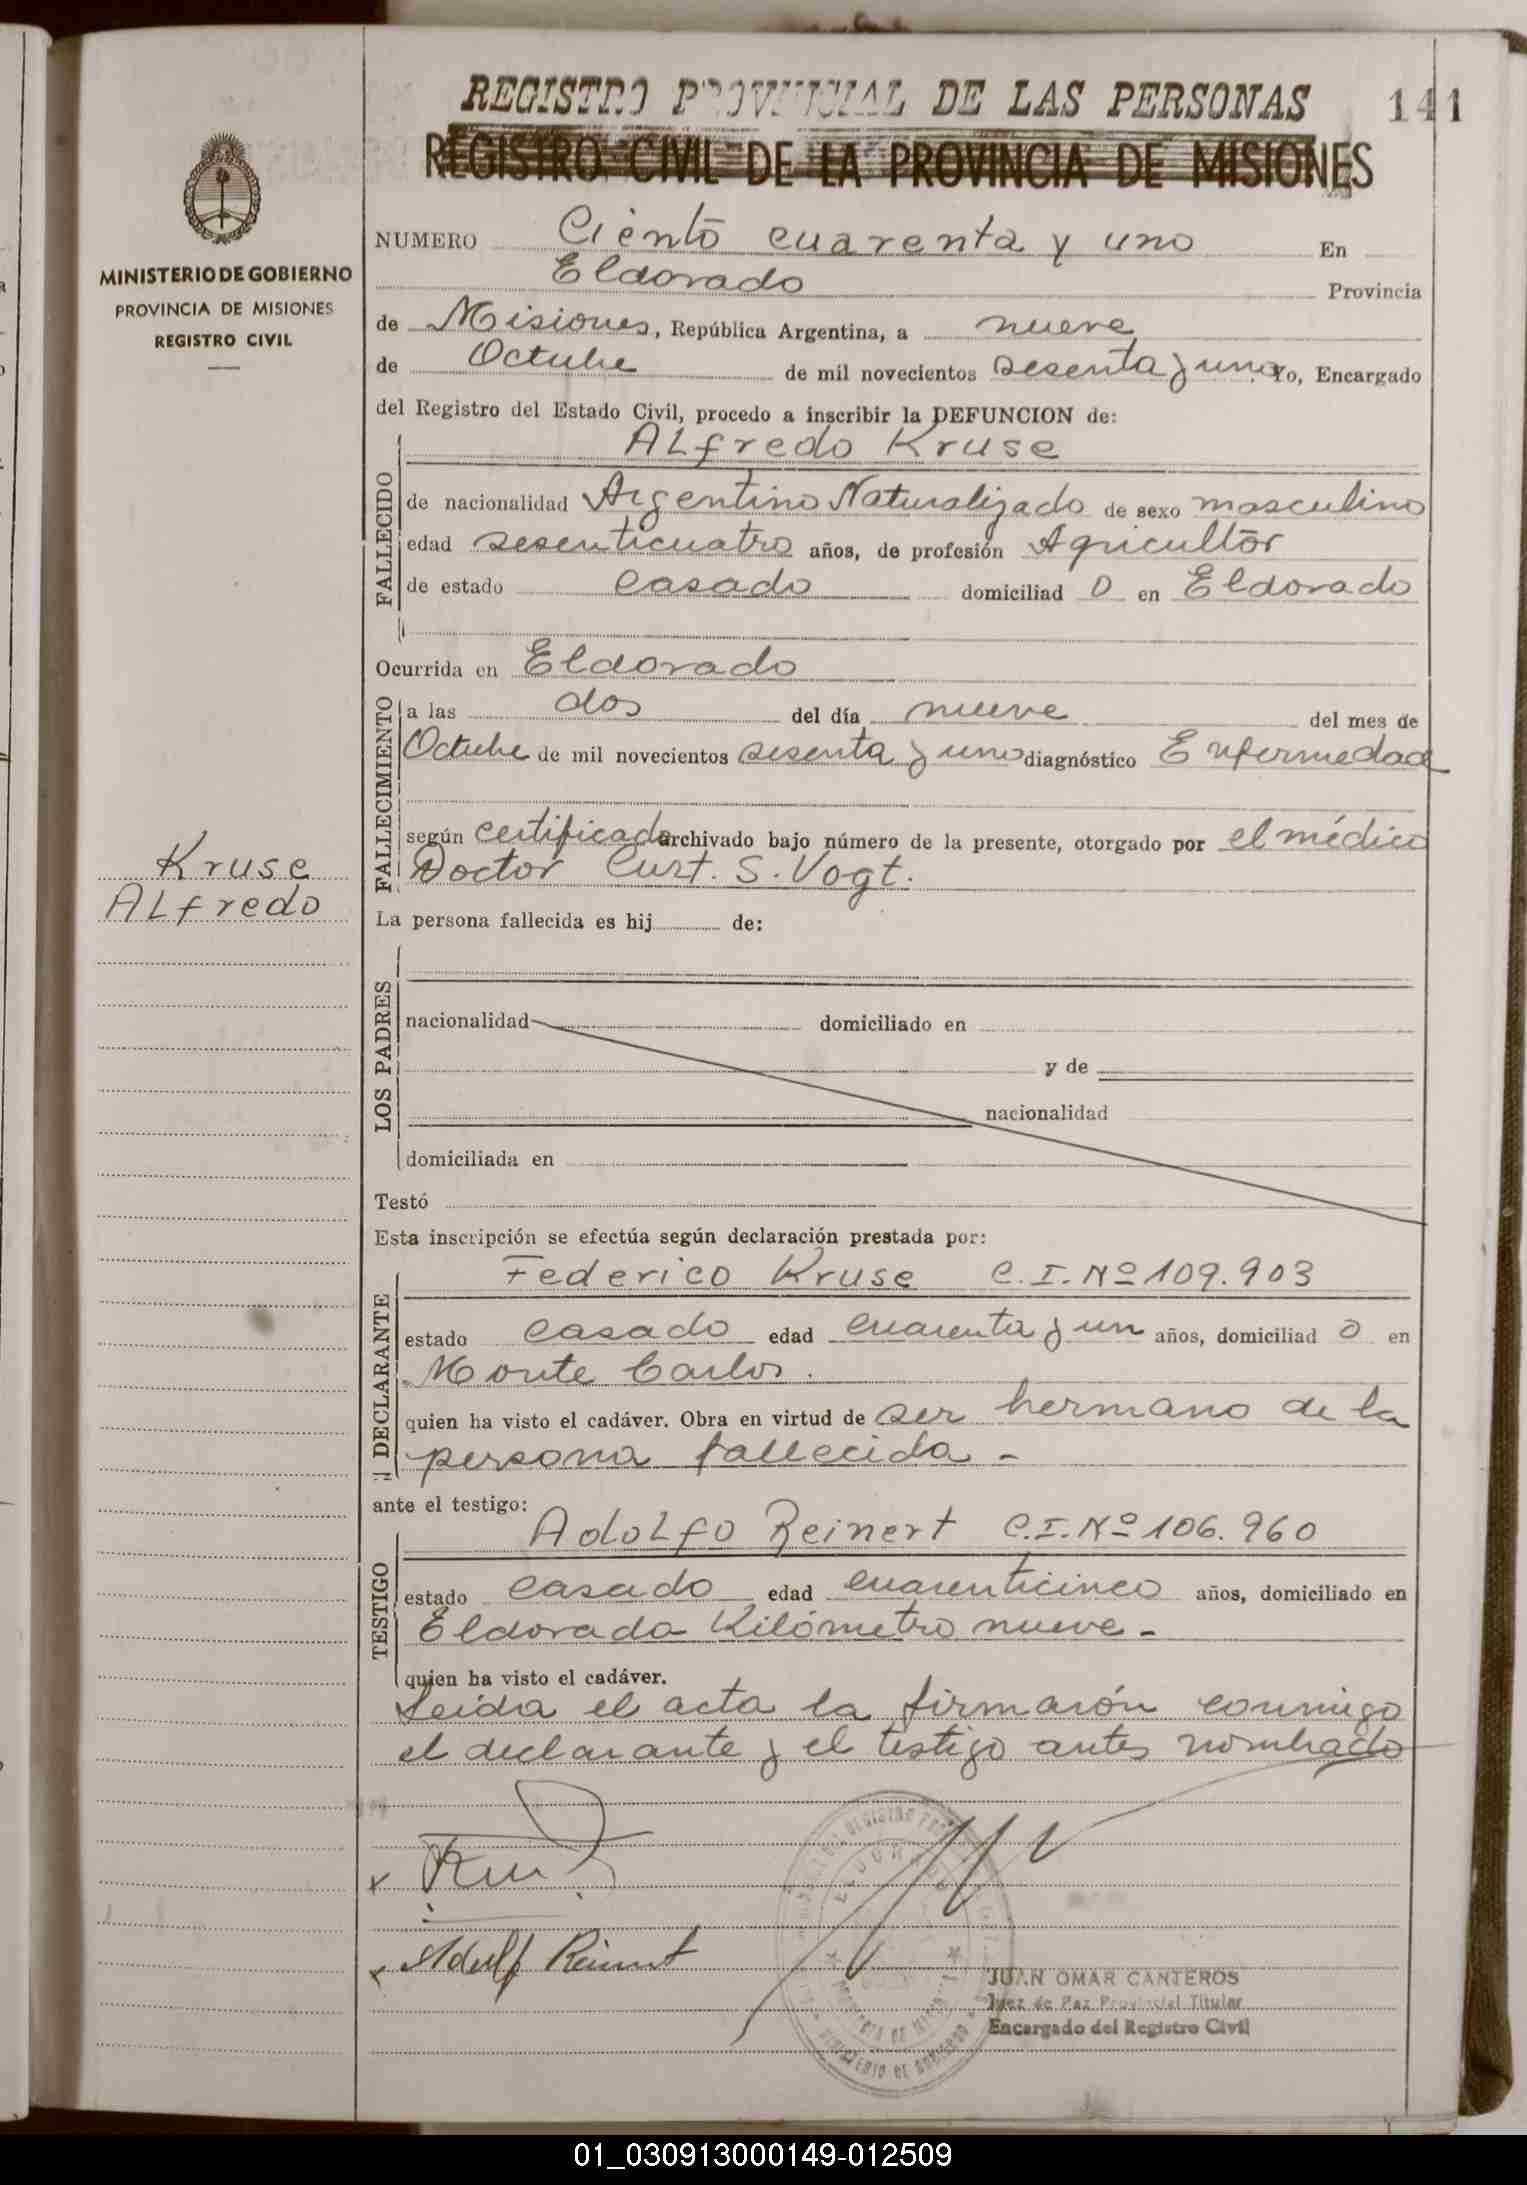 REGISTRO PROVINCIAL DE LAS PERSONAS 141
REGISTRO CIVIL DE LA PROVINCIA DE MISIONES
MINISTERIO DE GOBIERNO
PROVINCIA DE MISIONES
REGISTRO CIVIL
NUMERO Ciento cuarenta y uno En
Eldorado Provincia
de Misiones, República Argentina, a nueve
de Octubre de mil novecientos sesenta y uno. Yo, Encargado
del Registro del Estado Civil, procedo a inscribir la DEFUNCION de:
ALfredo Kruse
FALLECIDO
de nacionalidad Argentino Naturalizado de sexo masculino
edad sesenticuatro años, de profesión Agricultor
de estado casado domiciliad o en Eldorado
Ocurrida en Eldorado
FALLECIMIENTO
a las dos del día nueve del mes de
Octubre de mil novecientos sesenta y uno diagnóstico Enfermedad
según certificado archivado bajo número de la presente, otorgado por el médico
Doctor Curt. S. Vogt.
Kruse
ALfredo
La persona fallecida es hij de:
LOS PADRES
nacionalidad domiciliado en
y de
nacionalidad
domiciliada en
Testó
Esta inscripción se efectúa según declaración prestada por:
Federico Kruse C.I.Nº 109.903
DECLARANTE
estado casado edad cuarenta y un años, domiciliad o en
Monte Carlos.
quien ha visto el cadáver. Obra en virtud de ser hermano de la
persona fallecida -
ante el testigo:
AdoLfo Reinert C.I.Nº 106.960
TESTIGO
estado casado edad cuarenticinco años, domiciliado en
Eldorado Kilómetro nueve -
quien ha visto el cadáver.
Leída el acta la firmarón conmigo
el declarante y el testigo antes nombrado
x
x Adolf Reinert
ELDORADO
JUAN OMAR CANTEROS
Juez de Paz Provincial Titular
Encargado del Registro Civil
01_030913000149-012509